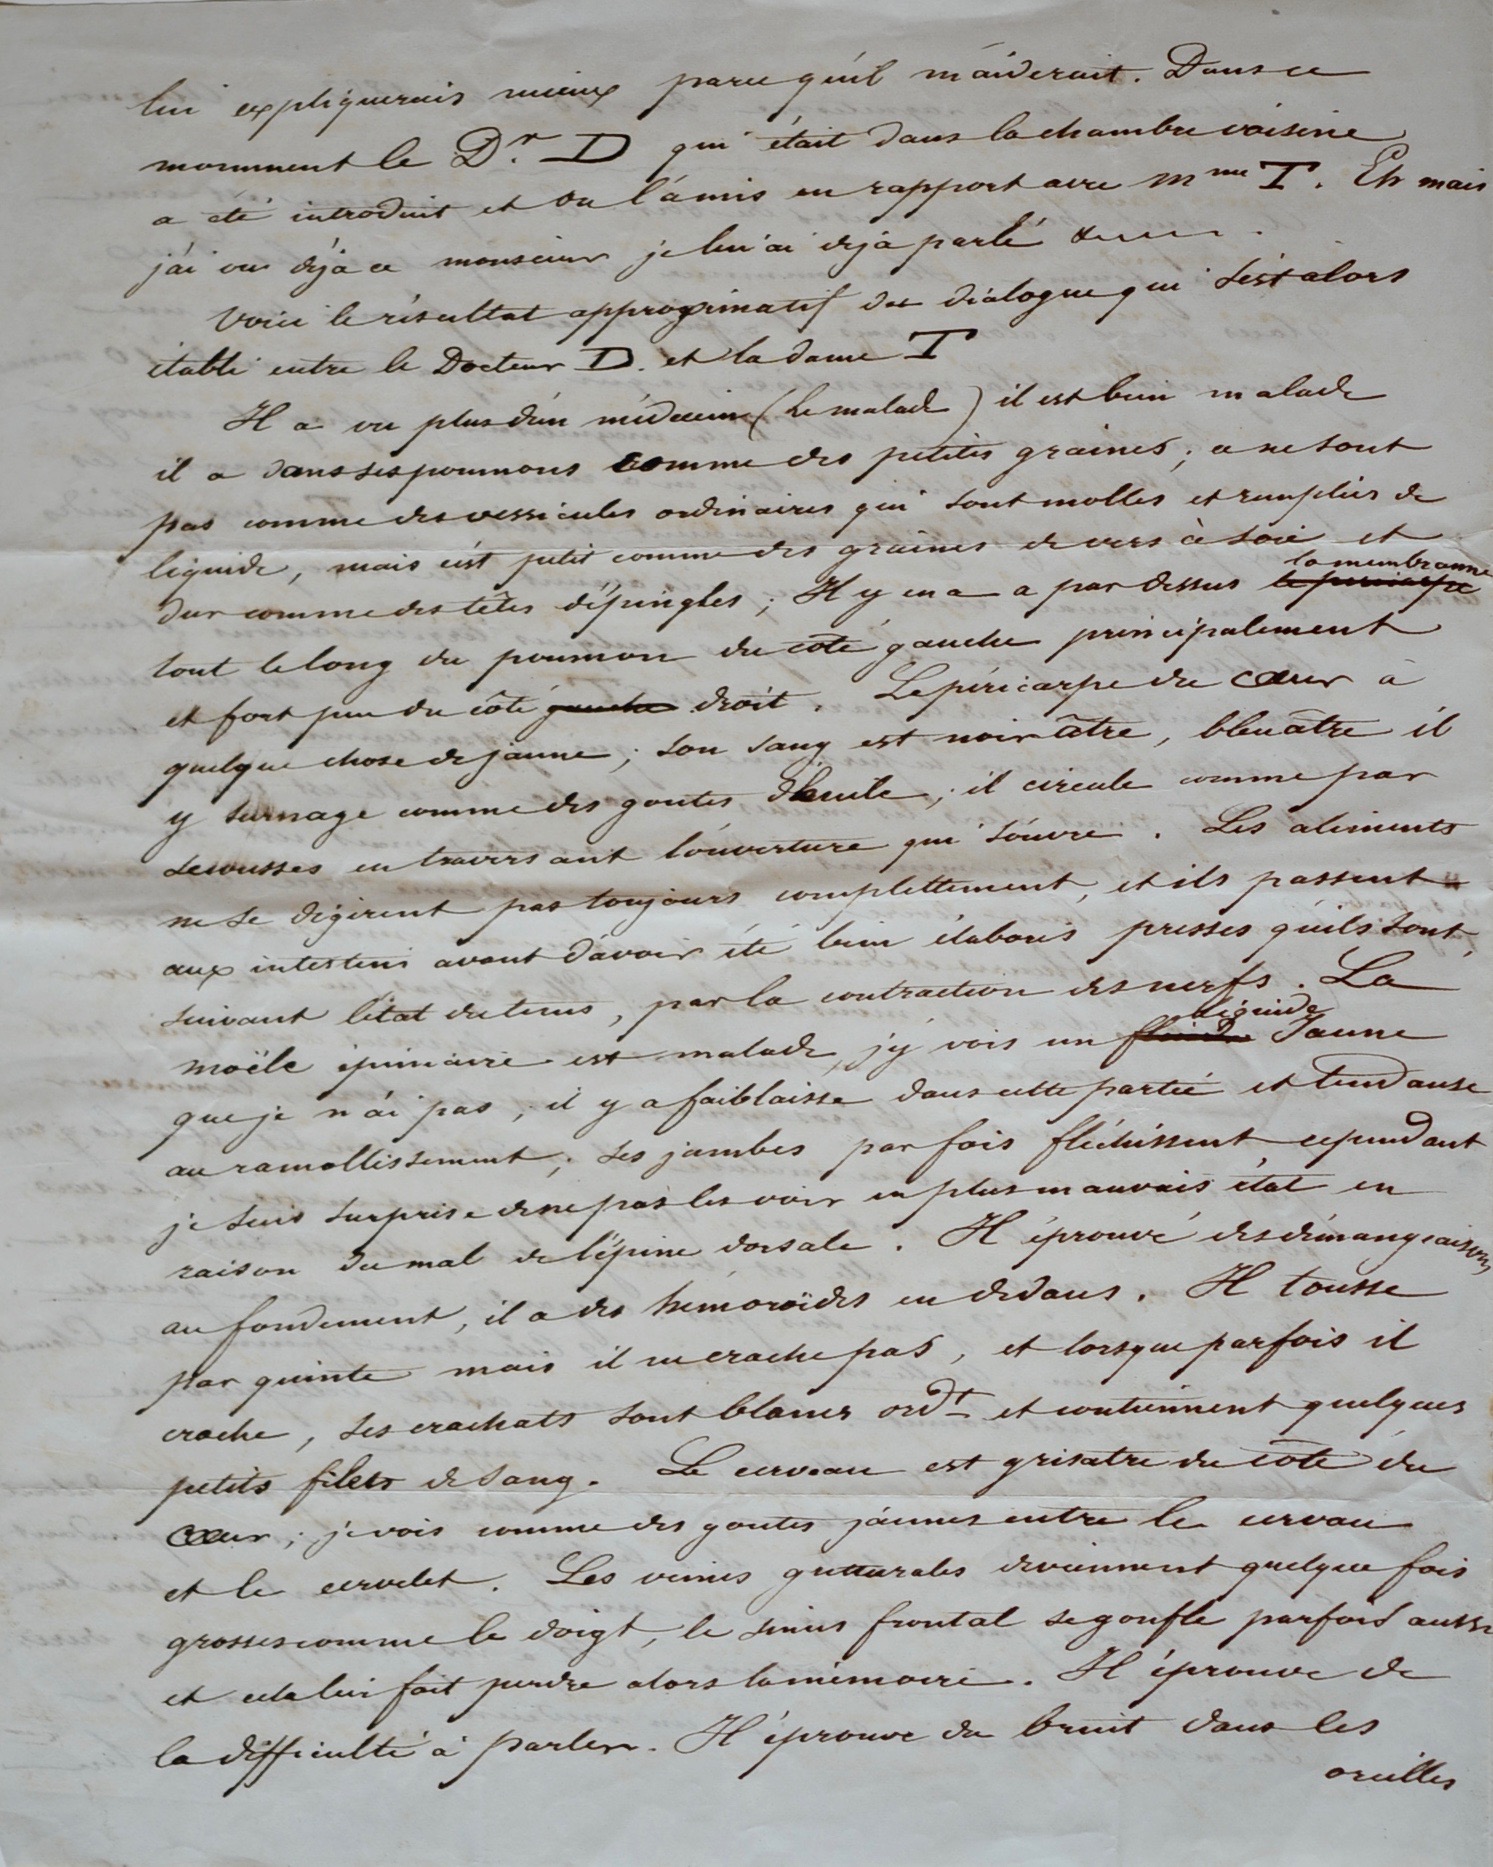 lui expliquerais mieux parce qu'il m'aiderait. Dans ce
momment le Dr. D qui était dans la chambre voisine
a été introduit et on l'a mis en rapport avec Mme T. Eh mais
j'ai vu déjà ce monsieur je lui ai déja parlé
Voici le résultat approximatif du dialogue qui s'est alors
établi entre le Docteur D. et la dame T
Il a vu plus d'un médecin (le malade) il est bien malade
il a dans ses poumons comme des petites graines; ce ne sont
pas comme des vessicules ordinaires qui sont molles et remplies de
liquide, mais c'est petit comme des graines de vers à soie et
dur comme des têtes d'épingles; Il y en a a par dessus le péricarpe la membranne
tout le long du poumon du coté gauche principalement
et fort peu du côté gauche droit. Le péricarpe du cœur à
quelque chose de jaune; son sang est noirâtre, bleuâtre il
y surnage comme des goutes d'huile; il circule comme par
secousses en traversant l'ouverture qui s'ouvre. Les aliments
ne se digèrent pas toujours complettement, et ils passent
aux intestins avant d'avoir été bien élaborés pressés qu'ils sont,
suivant l'état du tems, par la contraction des nerfs. La
moële épinière est malade, j'y vois un fluide liquide Jaune
que je n'ai pas; il y a faiblaisse dans cette partie et tendanse
au ramollissement; ses jambes par fois fléchissent cependant
je suis surprise de ne pas les voir en plus mauvais état en
raison du mal de l'épine dorsale. Il éprouve des démangeaisons
au fondement, il a des hémoroïdes en dedans. Il tousse
par quinte mais il ne crache pas, et lorsque parfois il
crache, ses crachats sont blancs ordt et contiennent quelques
petits filets de sang. Le cerveau est grisatre du côté du
cœur; je vois comme des goutes jaunes entre le cerveau
et le cervelet. Les veines gutturales deviennent quelque fois
grosses comme le doigt, le sinus frontal se gonfle parfois aussi
et cela lui fait perdre alors la mémoire. Il éprouve de
la difficulté à parler. Il éprouve du bruit dans les
oreilles